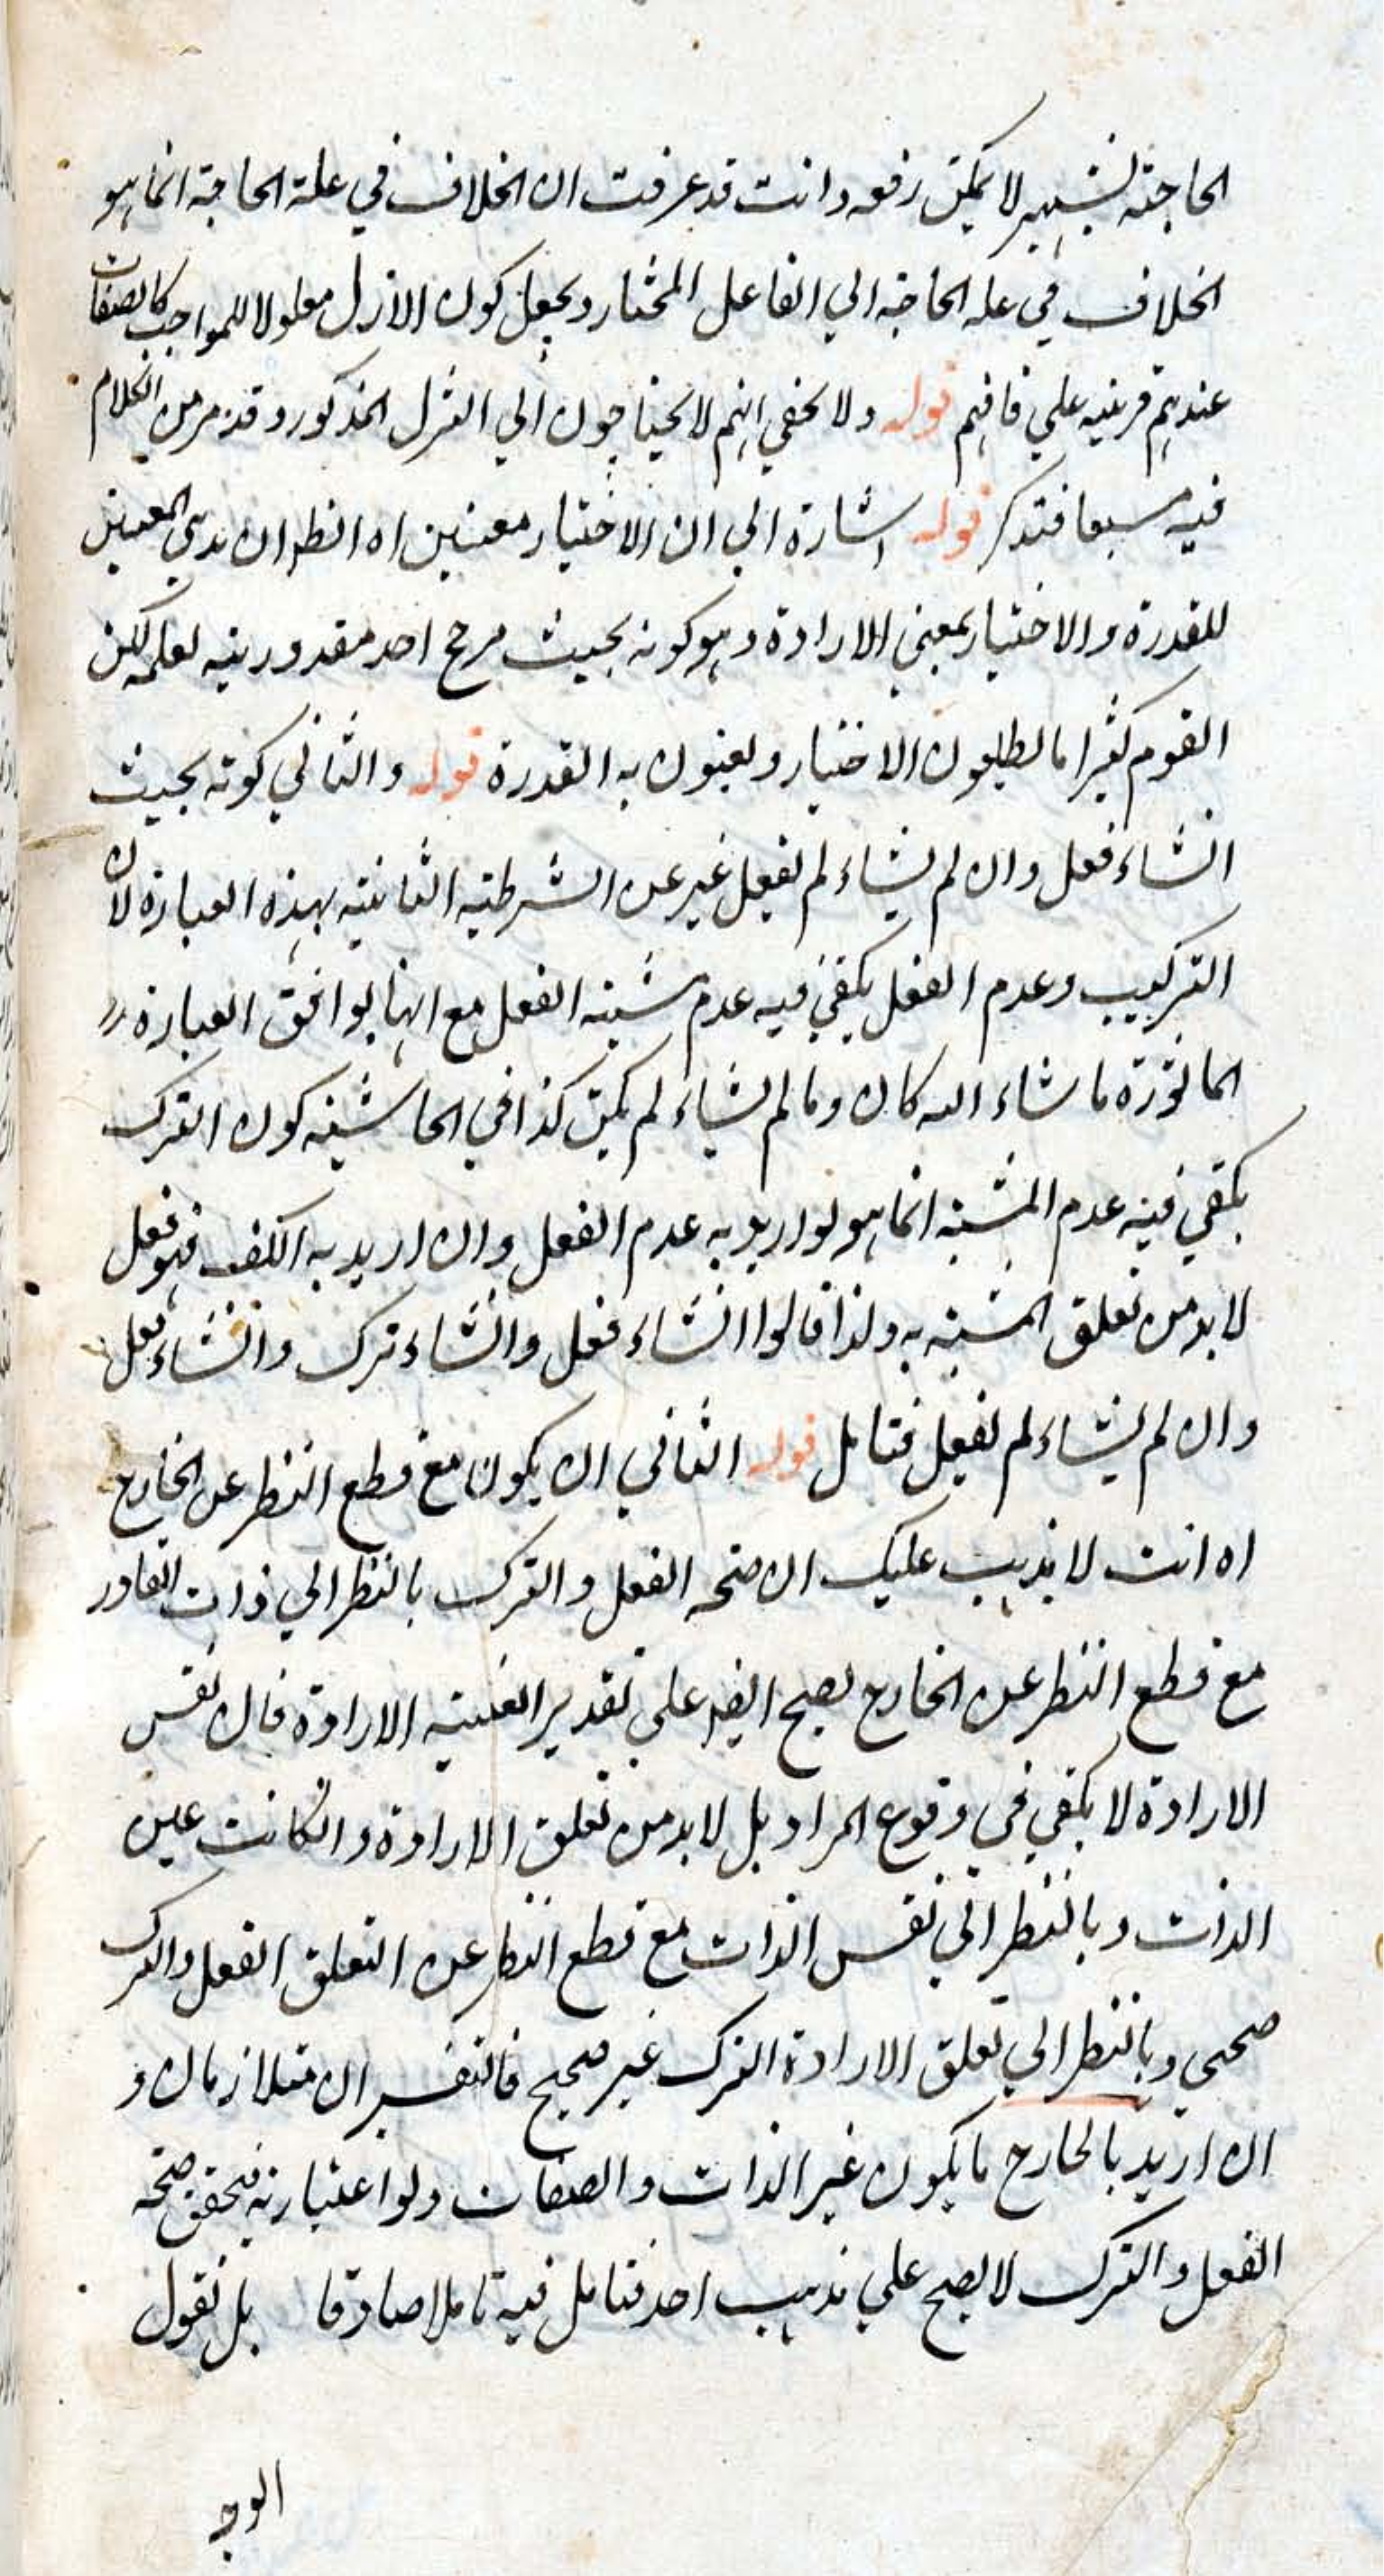 الحاجة لشهير لا يمكن رفعه وانت قد عرفت ان الخلاف في علة الحاجة انما هو
الخلاف في علة الحاجة الي الفاعل المختار ويجعل كون الازل معلولا للمواجب كالصفات
عندهم قرينيه علي فافهم قوله ولا يخفي انهم لا يحتاجون الي التنزل المذكور وقد مر من الكلام
فيه سبعا فتذكر قوله اشارة الي ان الاختيار معنيين اه انظر ان المعنيين
للقدرة والاختيار بمعني الارادة وهو كونه بحيث مرجح احد مقدوريته لعلمه لكن
القوم كثيرا ما يطلبون الاختيار ويعنون به القدرة قوله والثاني كونه بحيث
انشاء فعل وان لم يشاء لم يفعل غير عن الشرطية الثانية بهذه العبارة لان
التركيب وعدم الفعل يكفي فيه عدم مشية الفعل مع انها يوافق العبارة
الماثورة ما شاء الله كان وما لم يشاء لم يكن كذا في الحاشية كون الترك
يكفي فيه عدم المشية انما هو لو اريد به عدم الفعل وان اريد به الكف فهو فعل
لا بد من تعلق المشية به ولذا قالوا انشاء فعل وانشاء ترك وانشاء فعل
وان لم يشاء لم يفعل فتامل قوله الثاني ان يكون مع قطع النظر عن الخارج
اه انت لا يذهب عليك ان صحة الفعل والترك بالنظر الي ذات القادر
مع قطع النظر عن الخارج يصح ايضا علي تقدير العينية الارادة فان نفس
الارادة لا يكفي في وقوع المراد بل لا بد من تعلق الارادة وانكانت عين
الذات وبالنظر الي نفس الذات مع قطع النظر عن التعلق الفعل والترك
صحى وبالنظر الي تعلق الارادة الترك غير صحيح فالتفسير ان متلازمان و
ان اريد بالخارج ما يكون غير الذات والصفات ولو اعتبارية فتحقق صحة
الفعل والترك لا يصح علي مذهب احد فتامل فيه تاملا صادقا بل نقول
الوجه